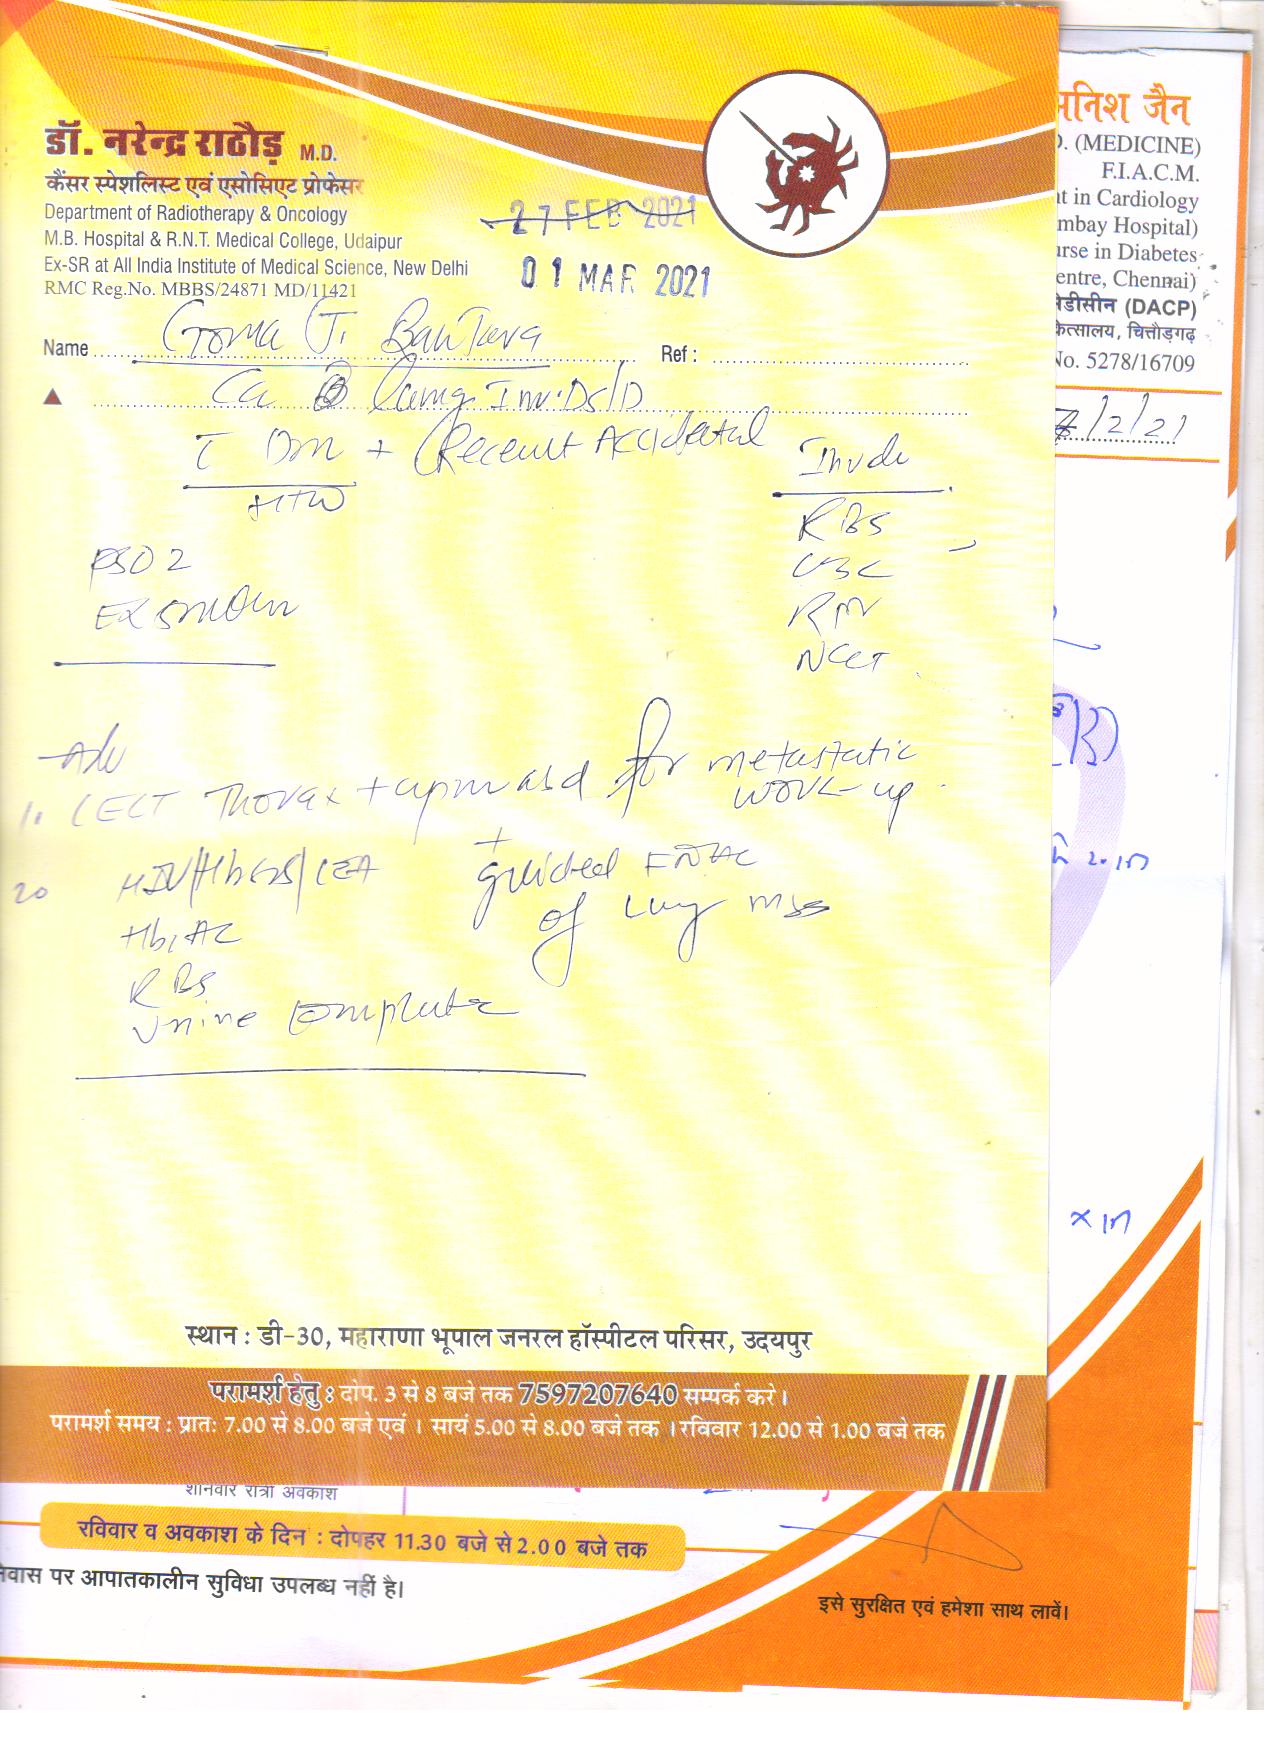 डॉ. नरेन्द्र राठौड़ M.D.
कैंसर स्पेशलिस्ट एवं एसोसिएट प्रोफेसर
Department of Radiotherapy & Oncology
M.B. Hospital & R.N.T. Medical College, Udaipur
Ex-SR at All India Institute of Medical Science, New Delhi
RMC Reg.No. MBBS/24871 MD/11421
27 FEB 2021
01 MAR 2021
Name Goma Ref :
Ca lung
DM + Recent Accidental
HTN
RBS
CBC
NCCT
Adv
1. CECT Thorax + for metastatic
work-up
+
guided FNAC
of lung mass
20 HIV/HbsAg/CEA
Hb1AC
RBS
Urine Complete
स्थान : डी-30, महाराणा भूपाल जनरल हॉस्पीटल परिसर, उदयपुर
परामर्श हेतु : दोप. 3 से 8 बजे तक 7597207640 सम्पर्क करे।
परामर्श समय : प्रातः 7.00 से 8.00 बजे एवं । सायं 5.00 से 8.00 बजे तक । रविवार 12.00 से 1.00 बजे तक
मनिश जैन
D. (MEDICINE)
F.I.A.C.M.
nt in Cardiology
mbay Hospital)
urse in Diabetes
entre, Chennai)
मेडीसीन (DACP)
कित्सालय, चित्तौड़गढ़
No. 5278/16709
/2/21
शनिवार रात्री अवकाश
रविवार व अवकाश के दिन : दोपहर 11.30 बजे से 2.00 बजे तक
निवास पर आपातकालीन सुविधा उपलब्ध नहीं है।
इसे सुरक्षित एवं हमेशा साथ लावें।